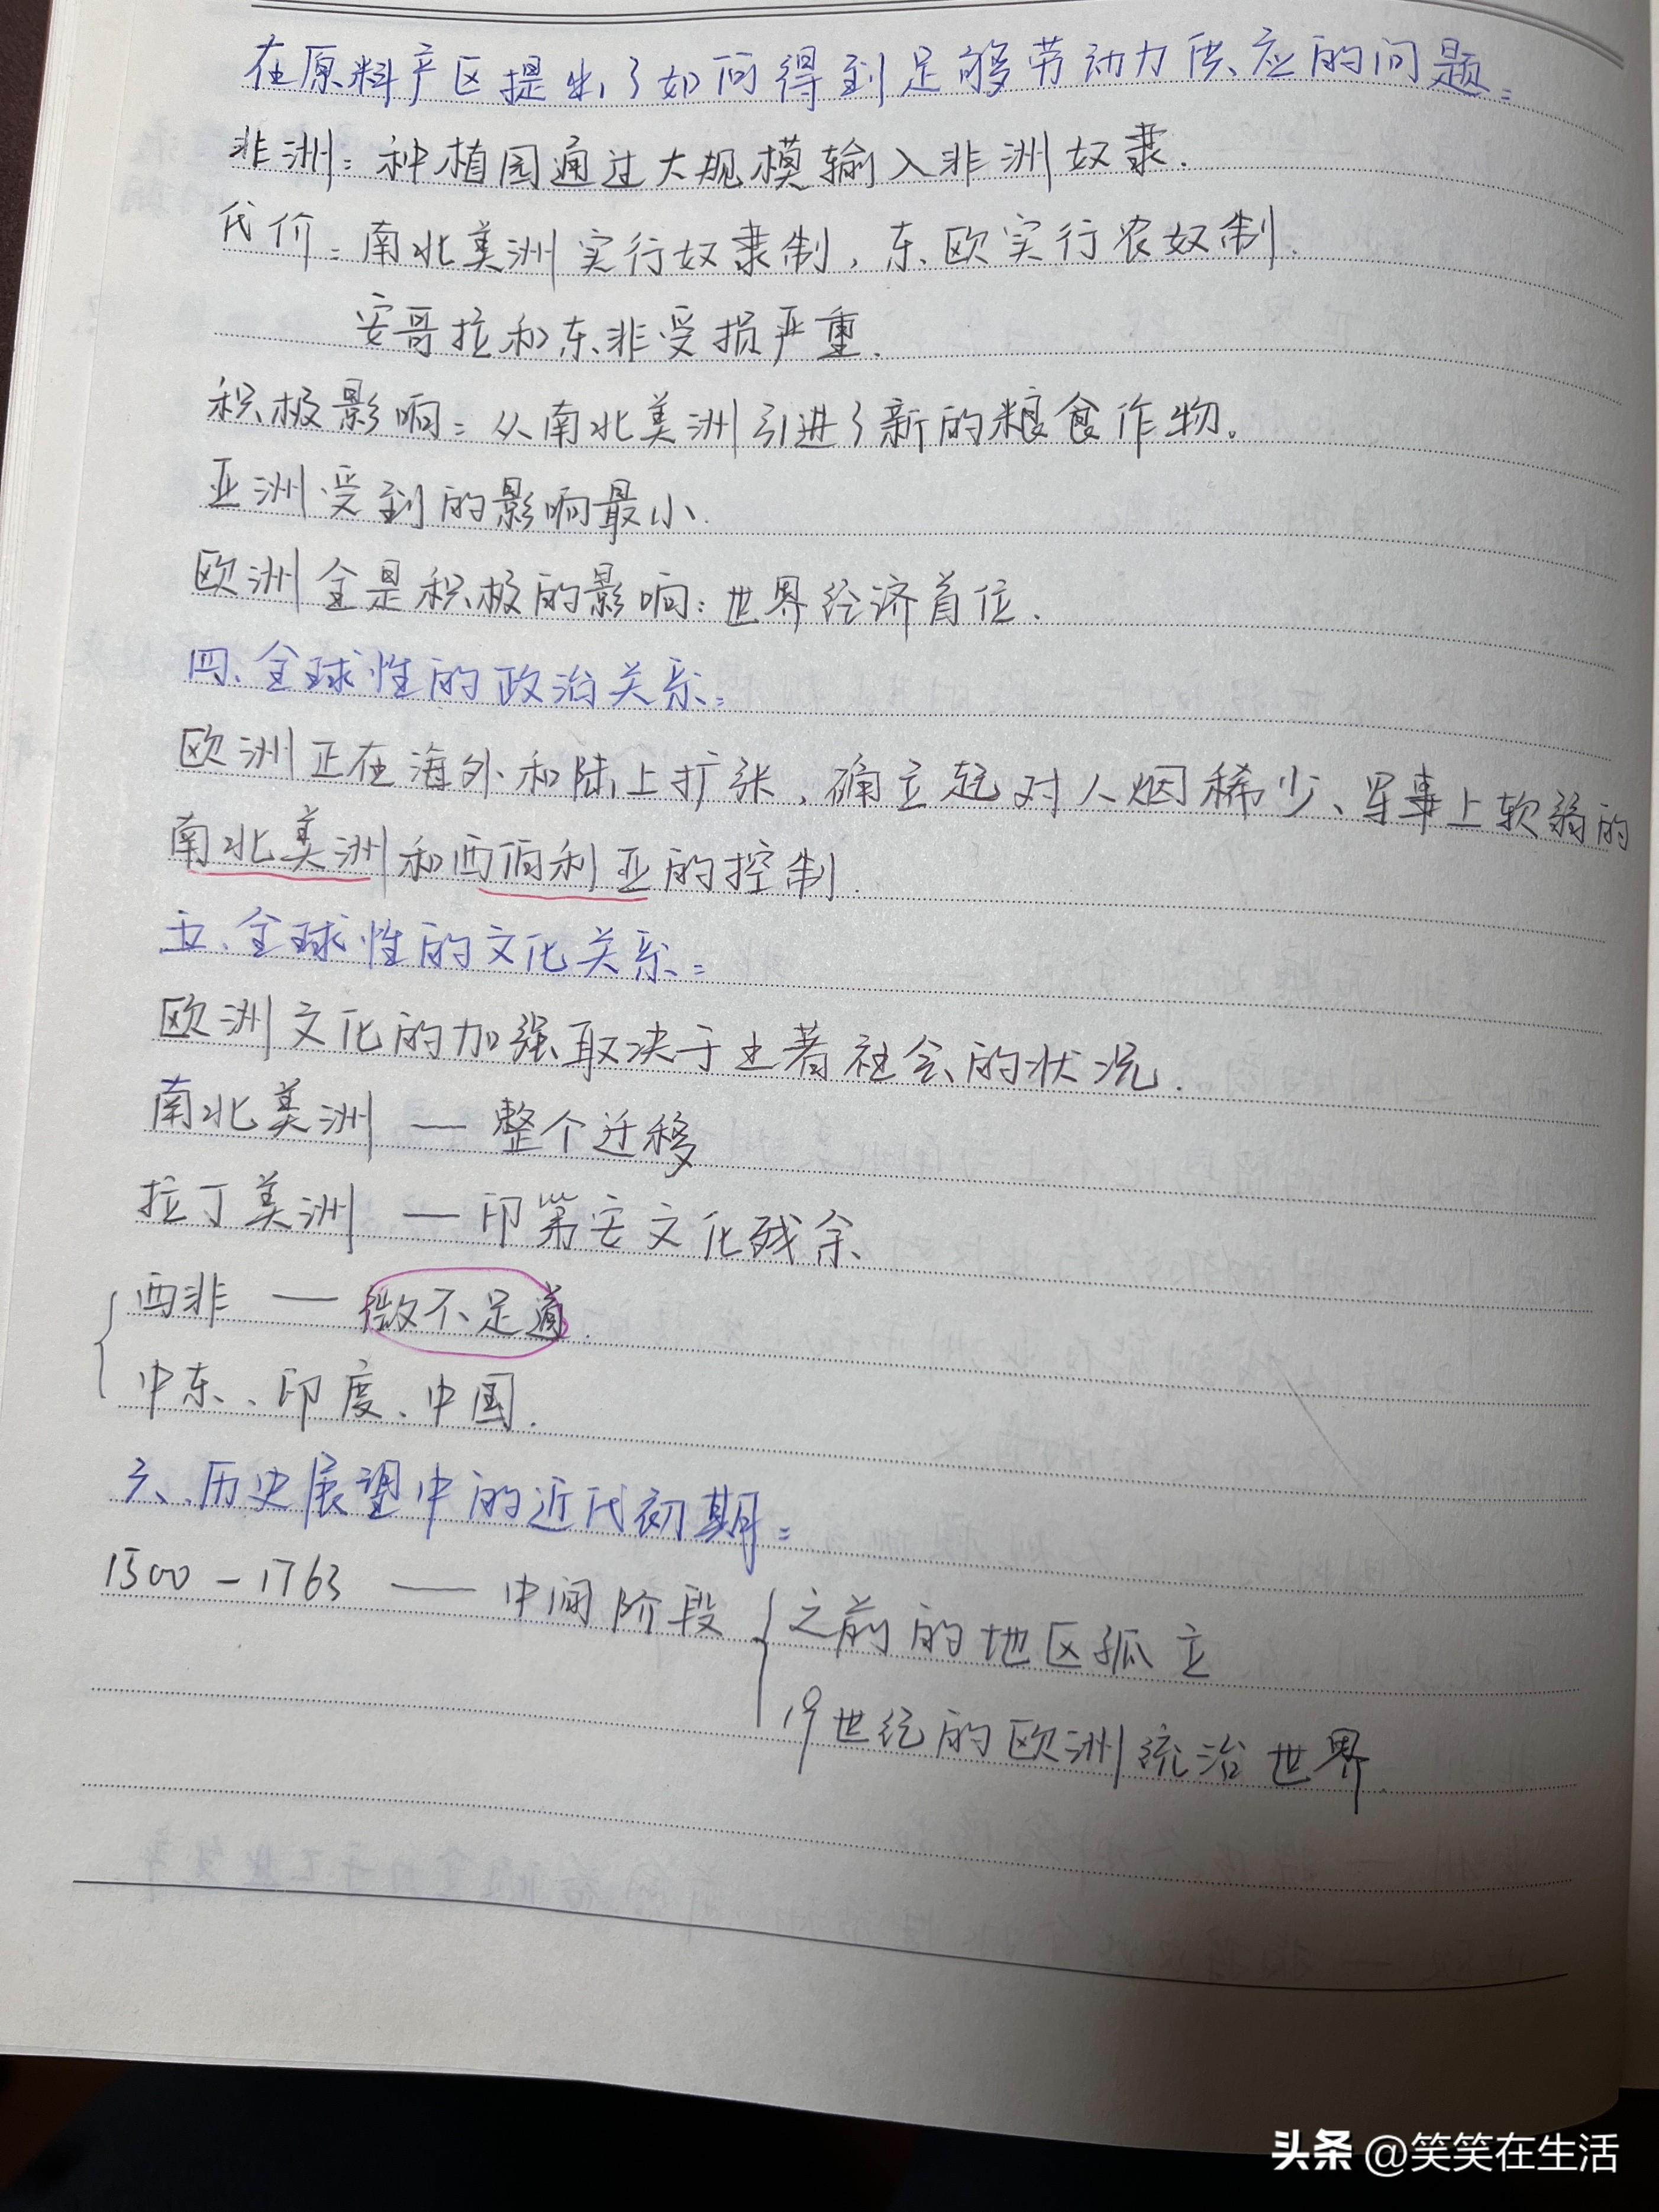 在原料产区提出了如何得到足够劳动力供应的问题：
非洲：种植园通过大规模输入非洲奴隶.
代价：南北美洲实行奴隶制，东欧实行农奴制.
安哥拉和东非受损严重.
积极影响：从南北美洲引进了新的粮食作物。
亚洲受到的影响最小.
欧洲全是积极的影响：世界经济首位.
四、全球性的政治关系：
欧洲正在海外和陆上扩张，确立起对人烟稀少、军事上软弱的
南北美洲和西伯利亚的控制.
五、全球性的文化关系：
欧洲文化的加强取决于土著社会的状况.
南北美洲 — 整个迁移
拉丁美洲 — 印第安文化残余
西非 — 微不足道.
中东、印度、中国.
六、历史展望中的近代初期：
1500-1763 — 中间阶段 { 之前的地区孤立
19世纪的欧洲统治世界.
头条 @笑笑在生活